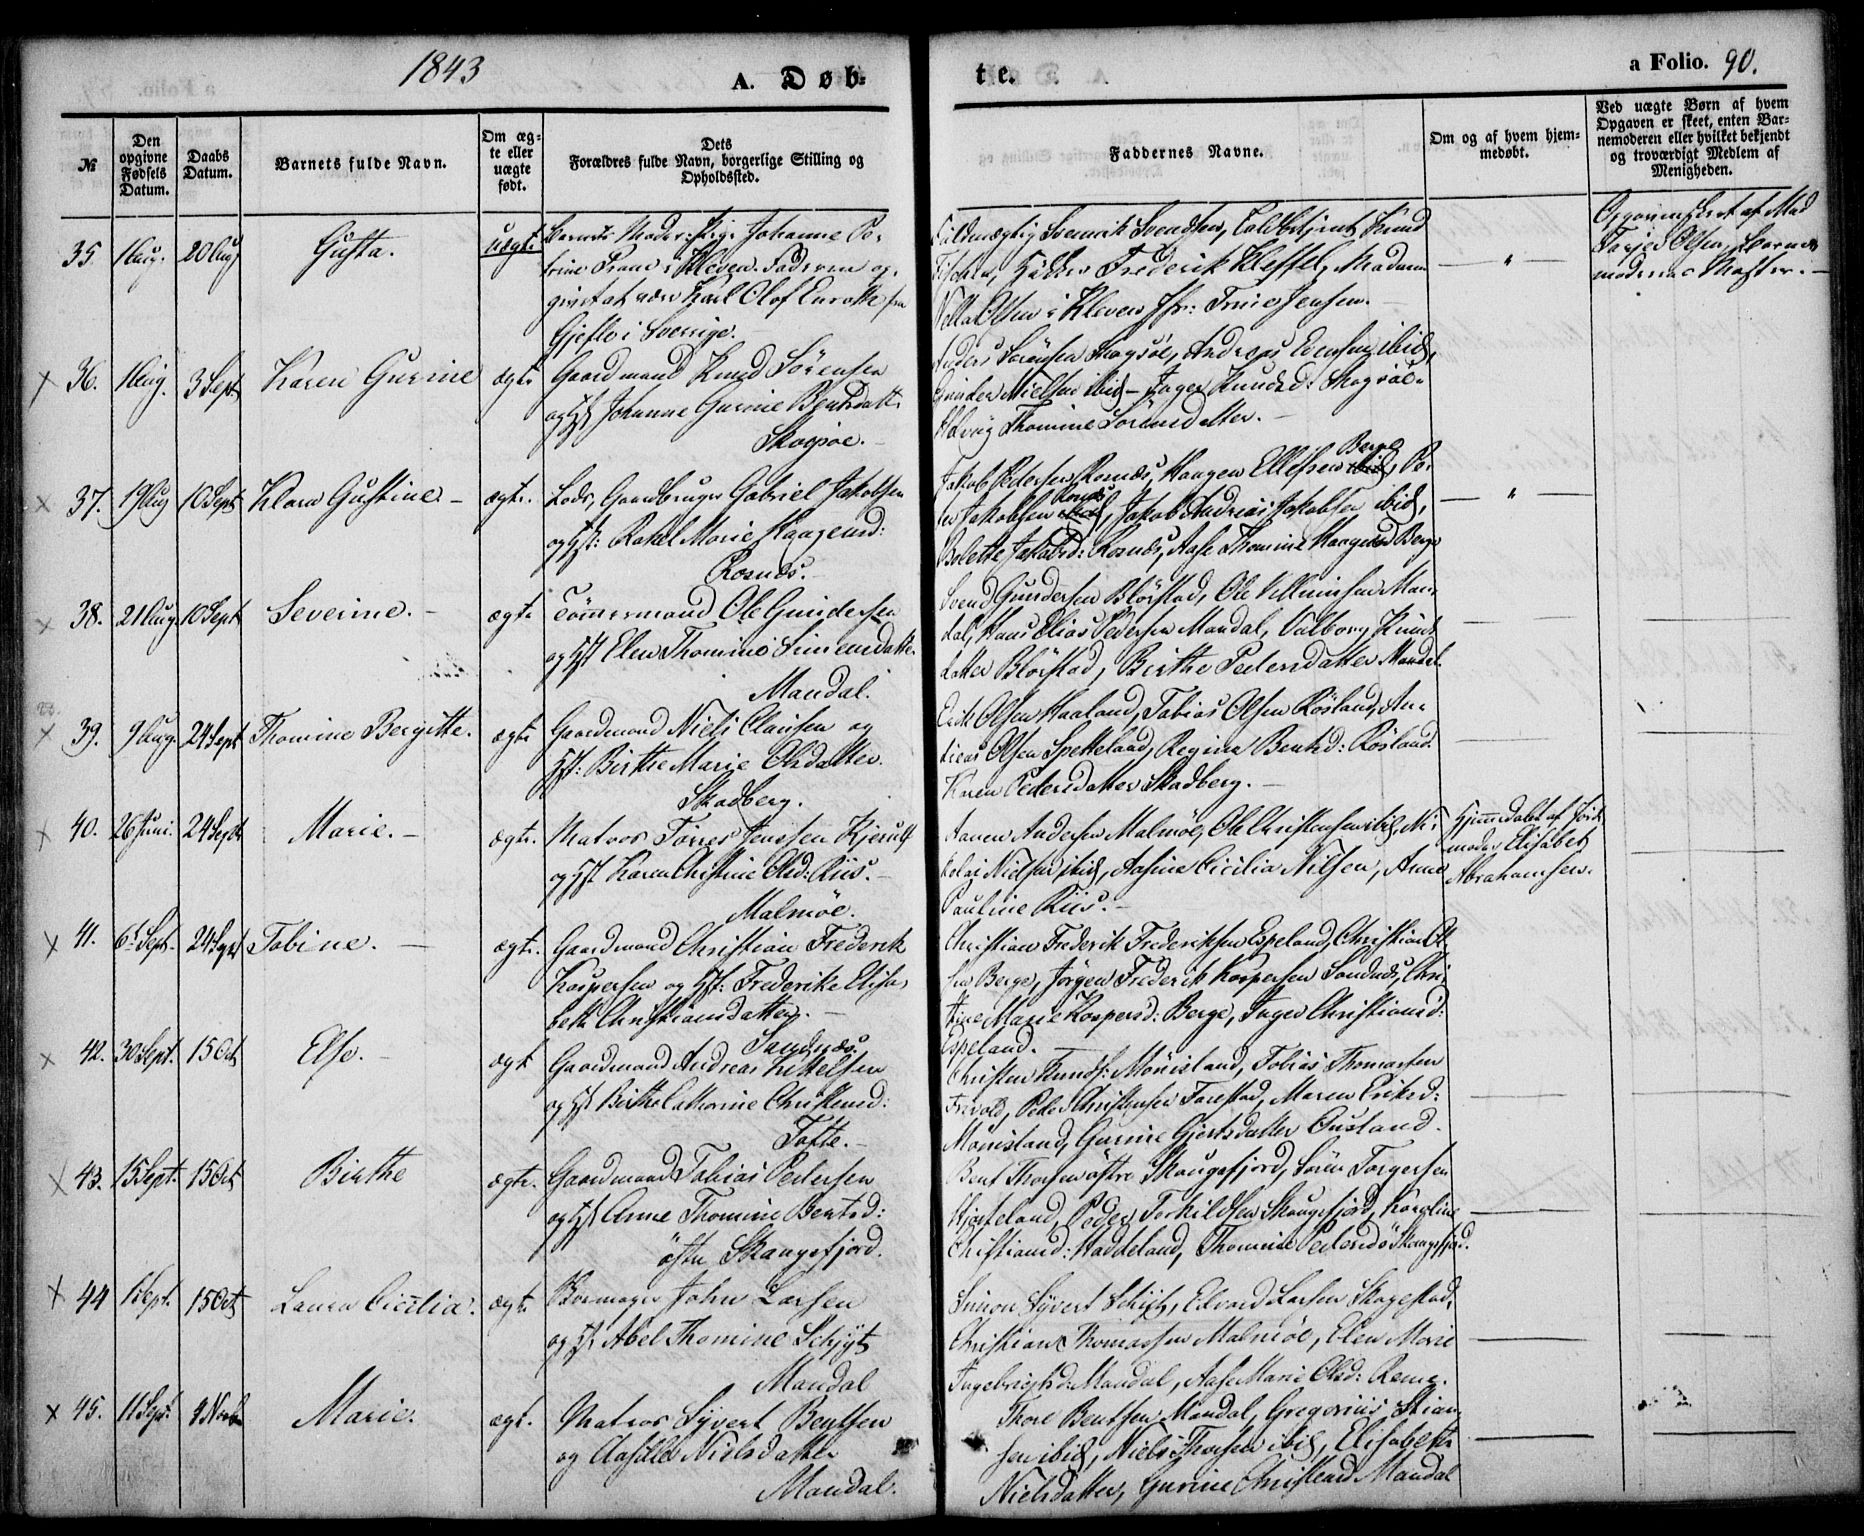 1843
A. Døb-
te.
a Folio. 90.
№
Den opgivne Fødsels Datum.
Daabs Datum.
Barnets fulde Navn.
Om ægte eller uægte født.
Dets Forældres fulde Navn, borgerlige Stilling og Opholdssted.
Faddernes Navne.
Om og af hvem hjemmedøbt.
Ved uægte Børn af hvem Opgaven er skeet, enten Barnemoderen eller hvilket bekjendt og troværdigt Medlem af Menigheden.
35. 1 Aug. 20 Aug Gusta. uægte
Barnets Moder: Johanne
i Kleven. Faderen op-
givet at være Karl Olof fra
Gjefle i Sverrige.
Svendsen,
Frederik Kleffel, Madame
Olsen i Kleven Jfr: Trine Jensen.
Opgaven skeet af Mad
Olsen, Barne
moderens
36. 1 Aug. 3 Sept Karen Gurine ægte
Gaardmand Knud Sørensen
og Hst Johanne Gurine Bentsdatt.
Skogsøe.
Anders Sørensen Skogsøe, Andreas Evensen ibid,
Gunder Nielsen ibid – Inger Knudsd: Skogsøe
Thomine Sørensdatter. –
37. 19 Aug 10 Sept Klara Gustine. – ægte.
Lods, Gaardbruger Gabriel Jakobsen
og Hst: Rakel Marie Haagensd:
Rosnæs. –
Jakob Pedersen Rosnæs, Haagen Ellefsen Berge, Pe-
der Jakobsen Rosnæs, Jakob Andreas Jakobsen ibid,
Bolette Jakobsd: Rosnæs, Aase Thomine Haagensd Berge
38. 21 Aug. 10 Sept Severine. – ægte
Tømmermand Ole Gundersen
og Hst Elen Thomine Simensdatter
Mandal.
Svend Gundersen Blørstad, Ole Man-
dal, Hans Elias Pedersen Mandal, Valborg Knuds
datter Blørstad, Birthe Pedersdatter Mandal.
39. 9 Aug. 24 Sept Thomine Bergitte. ægte
Gaardmand Niels Clausen og
Hst: Birthe Marie Olsdatter.
Skadberg.
Erik Olsen Haaland, Tobias Olsen Røsland, An-
dreas Olsen Spetteland, Regine Bentsd: Røsland.
Karen Pedersdatter Skadberg. –
40. 26 Juni. 24 Sept Marie. – ægte.
Matros Tørres Jenssen Kjerulf
og Hst Karen Christine Olsd: Riis. –
Malmøe.
Aanen Andersen Malmøe, Ole Christensen ibid, Ni-
kolai Nielsen ibid, Aasine Cicilia Nilsen, Anne
Pauline Riis. –
Hjemmedøbt af Jord
moder Elisabet
Abrahamsen.
41. 6 Sept. 24 Sept Tobine. – ægte.
Gaardmand Christian Frederik
Kaspersen og Hst: Frederikke Elisa-
beth Christiansdatter. –
Sandnæs
Christian Frederik Frederiksen Espeland, Christian Ol-
sen Berge, Jørgen Frederik Kaspersen Sandnæs, Chri-
stine Marie Kaspersd: Berge, Inger Christiansd:
Espeland. –
42. 30 Sept. 15 Oct Else. – ægte
Gaardmand Andreas Kittelsen
og Hst Birthe Cathrine Christensd:
Tofte. –
Christen Knuds: Mønisland, Tobias Thomassen
Peder Christensen Farestad, Maren Eriksd:
Mønisland, Gurine Gjertsdatter Ousland.
43. 15 Sept. 15 Oct Birthe ægte.
Gaardmand Tobias Pedersen
og Hst Anne Thomine Bentsd:
østre Skaugsfjord.
Bent Thorsen østre Skaugsfjord, Søren Torgersen
Hjorteland, Peder Torkildsen Skaugsfjord, Karoline
Christiansd: Haddeland, Thomine Pedersd ø Skaugsfjord.
44 1 Sept. 15 Oct Laura Cicilia. ægte
John Larsen
og Hst Abel Thomine Schjøt
Mandal
Simon Syvert Schjøt, Edvard Larsen Skagestad,
Christian Thomassen Malmøe, Elen Marie
Ingebrigtsd: Mandal, Aase Marie Olsd: Reme.
45. 11 Sept. Marie. ægt.
Matros Syvert Bentsen
og Nielsdatter
Mandal.
Thore Bentsen Mandal, Gregorius Stian-
sen ibid, Niels Thorsen ibid, Elisabeth
Nielsdatter, Gurine Christensd Mandal